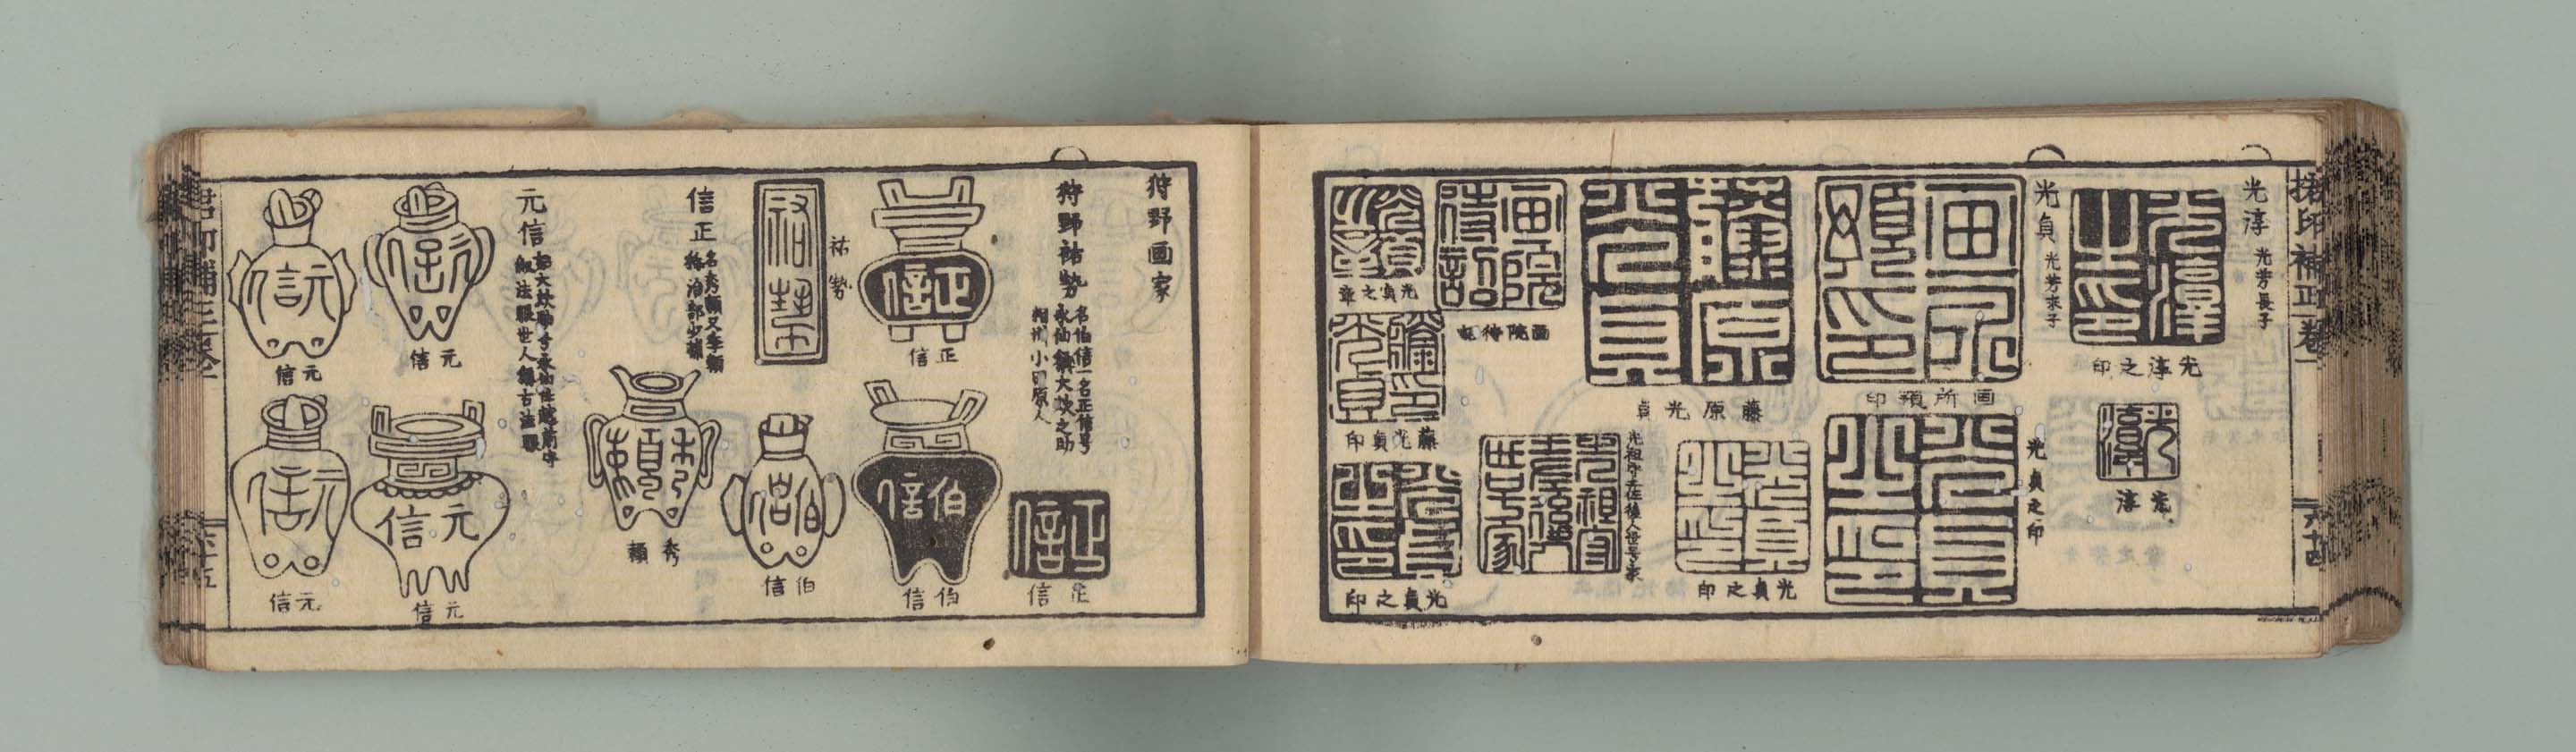 君印補正卷一
六十四
光淳 光芳長子
光淳之印
光淳
光貞 光芳末子
画所預印
光貞之印
藤原光貞
光貞之印
画院待詔
光祖守
光貞之章
藤光貞印
光貞之印
狩野画家
狩野祐勢
名伯信一名正信号
永仙稱大炊之助
相州小田原人
正信
正信
伯信
祐勢
伯信
信正
名秀頼又季頼
稱治部少輔
秀頼
元信
世人稱古法眼
元信
元信
元信
元信
君印補正卷一
六十五